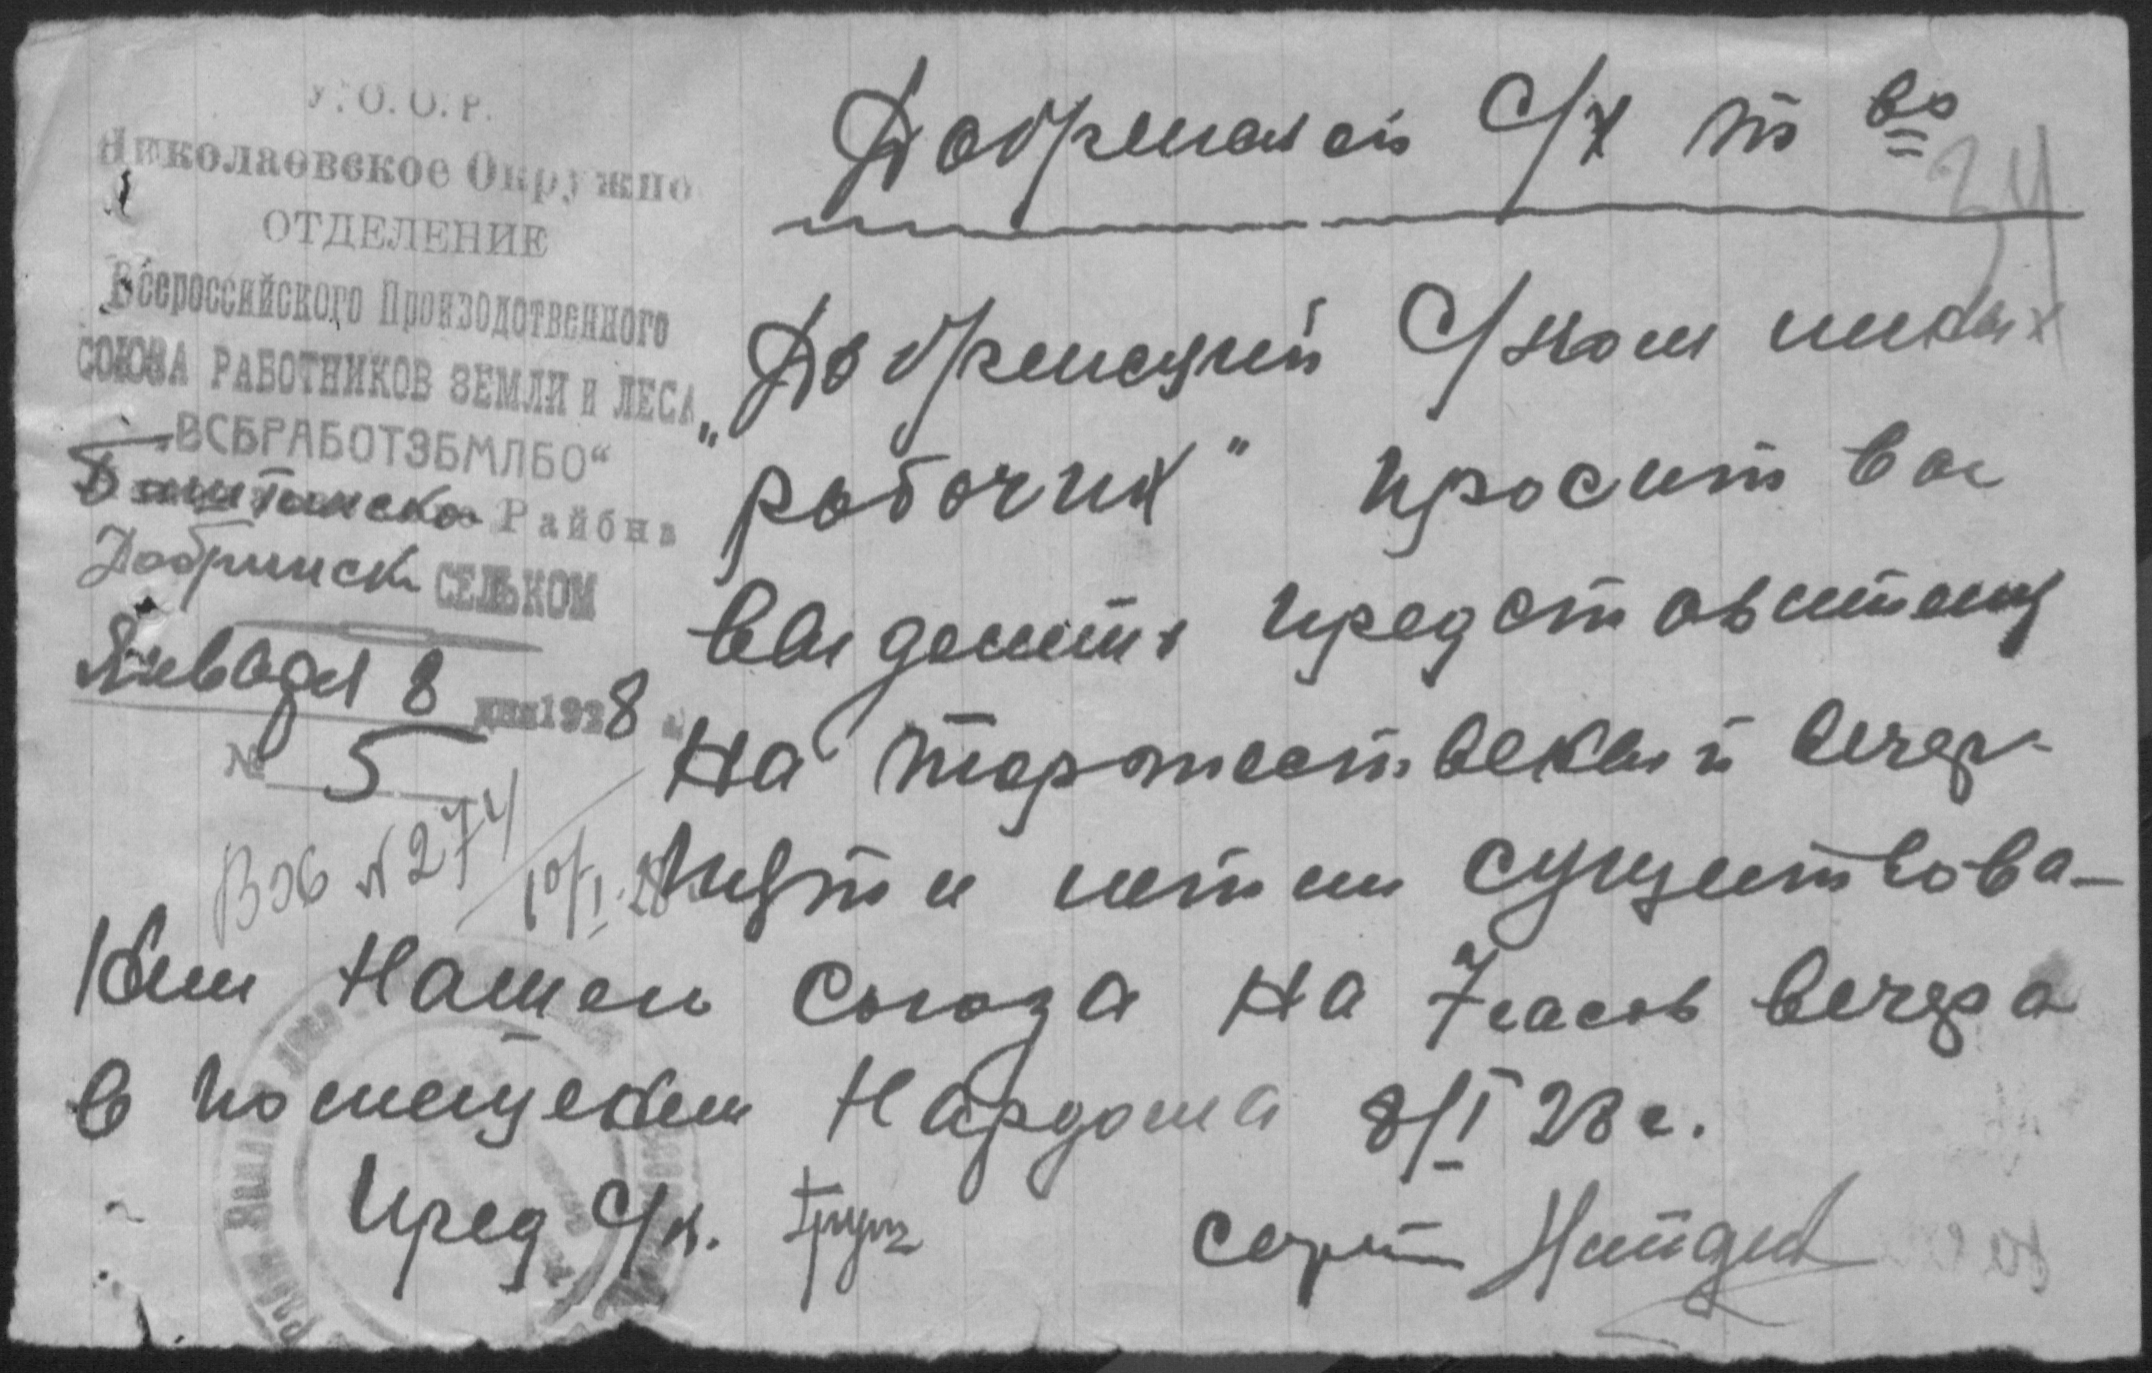 У.О.О.Р.
Николаевское Окружно
ОТДЕЛЕНИЕ
Всероссийского Произодственного
СОЮЗА РАБОТНИКОВ ЗЕМЛИ и ЛЕСА
„ВСЕРАБОТЗЕМЛЕС“
Района
Добринск СЕЛЬКОМ
Января 8 дня 1928
№ 5
Вх №274
10/I-28
34
С/х т во
„Добренский С/ком
рабочих" просит вас
выделить представителя
на торжественый вечер
существова-
нии нашего союза на 7 часов вечера
в помещении Нардома 8/I 28 г.
Пред С/к. секрет